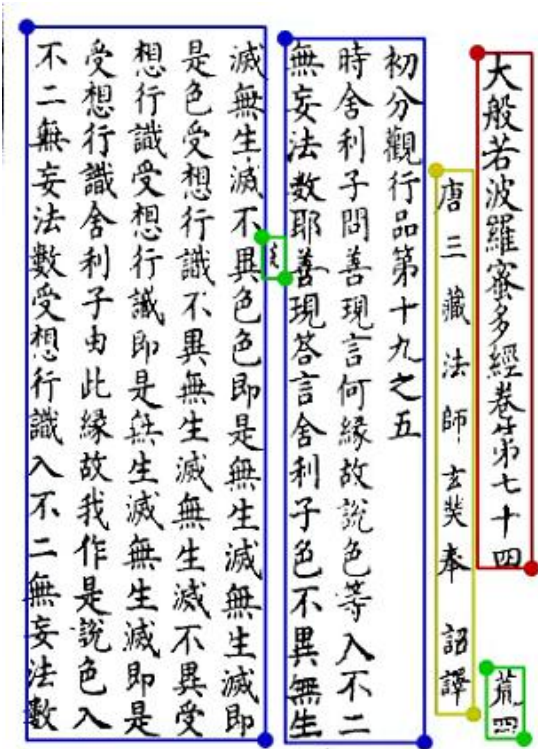 大般若波羅蜜多經卷第七十四
荒四
唐三藏法師玄奘奉 詔譯
初分觀行品第十九之五
時舍利子問善現言何緣故說色等入不二
無妄法數耶善現答言舍利子色不異無生
滅無生滅不異色色即是無生滅無生滅即
是色受想行識不異無生滅無生滅不異受
想行識受想行識即是無生滅無生滅即是
受想行識舍利子由此緣故我作是說色入
不二無妄法數受想行識入不二無妄法數